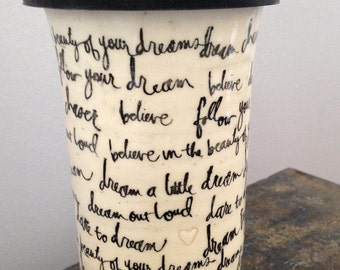 beauty of your dreams dream
follow your dream believe
chaser believe follow your
out loud believe in the beauty of
dream dream a little dream
dream out loud dare to
dare to dream dream
beauty of your dreams dream